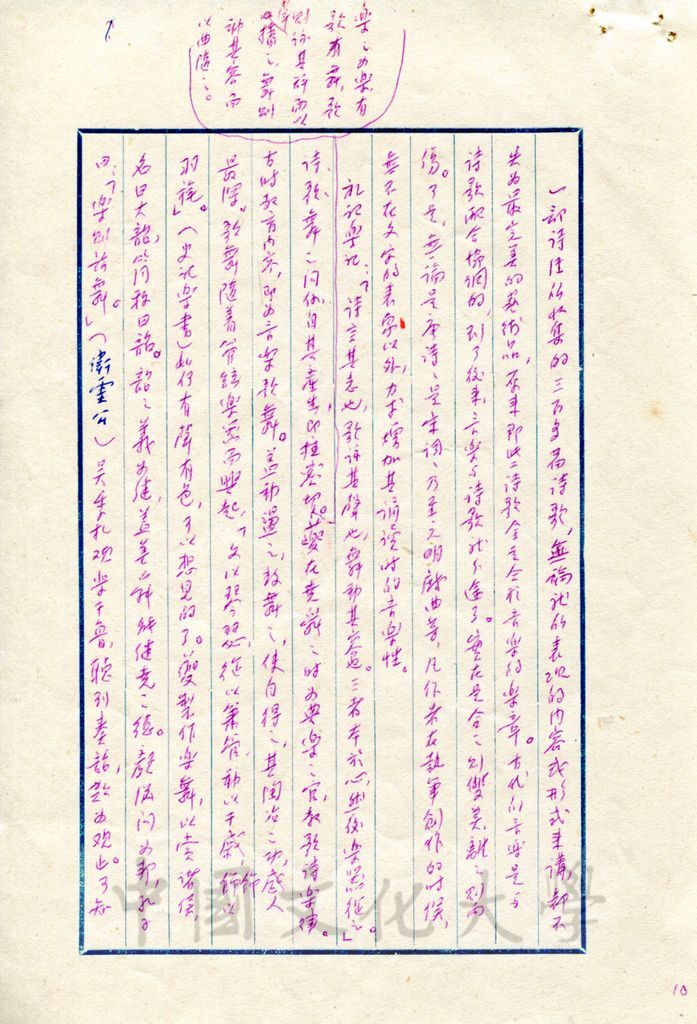 樂之為樂有
歌有舞，歌
則詠其辭而以
聲播之，舞則
動其容而
以曲隨之。
一部詩經所收集的三百多篇詩歌，無論就的表現的內容或形式來講，都不
失為最完美的藝術品，原來即此詩歌全是合於音樂的樂章。古代的音樂是与
詩歌配合協調的，到了後來，音樂与詩歌就分途了。實在是合之則雙美，離之則兩
傷。了是，無論是唐詩、是宋詞、乃至元明戲曲等，凡作者在執筆創作的时候，
無不在文字的表象以外，力求增加其誦讀时的音樂性。
礼記樂記：「詩言其志也，歌詠其聲也，舞動其容也。三者本於心，然後樂器從之。」
詩、歌、舞之関係自其產生即極密切。夔在堯舜之时為典樂之官，教歌詩樂律。
古时教育內容，即為音樂歌舞。蓋動盪之，鼓舞之，使自得之，其陶冶之功，感人
最深。歌舞隨着管絃樂器而興起，「文以琴瑟，從以簫管，動以干戚，飾以
羽旄。」（史記樂書）如何有聲有色，可以想見的了。夔製作樂舞，以賞諸侯，
名曰大韶，簡称曰韶。韶之義為继，蓋美舜能继堯之德。顏淵問為邦，孔子
曰：「樂則韶舞。」（衛靈公）吴季札观樂于魯，聽到奏韶，歎為观止。可知
中國文化大學
10